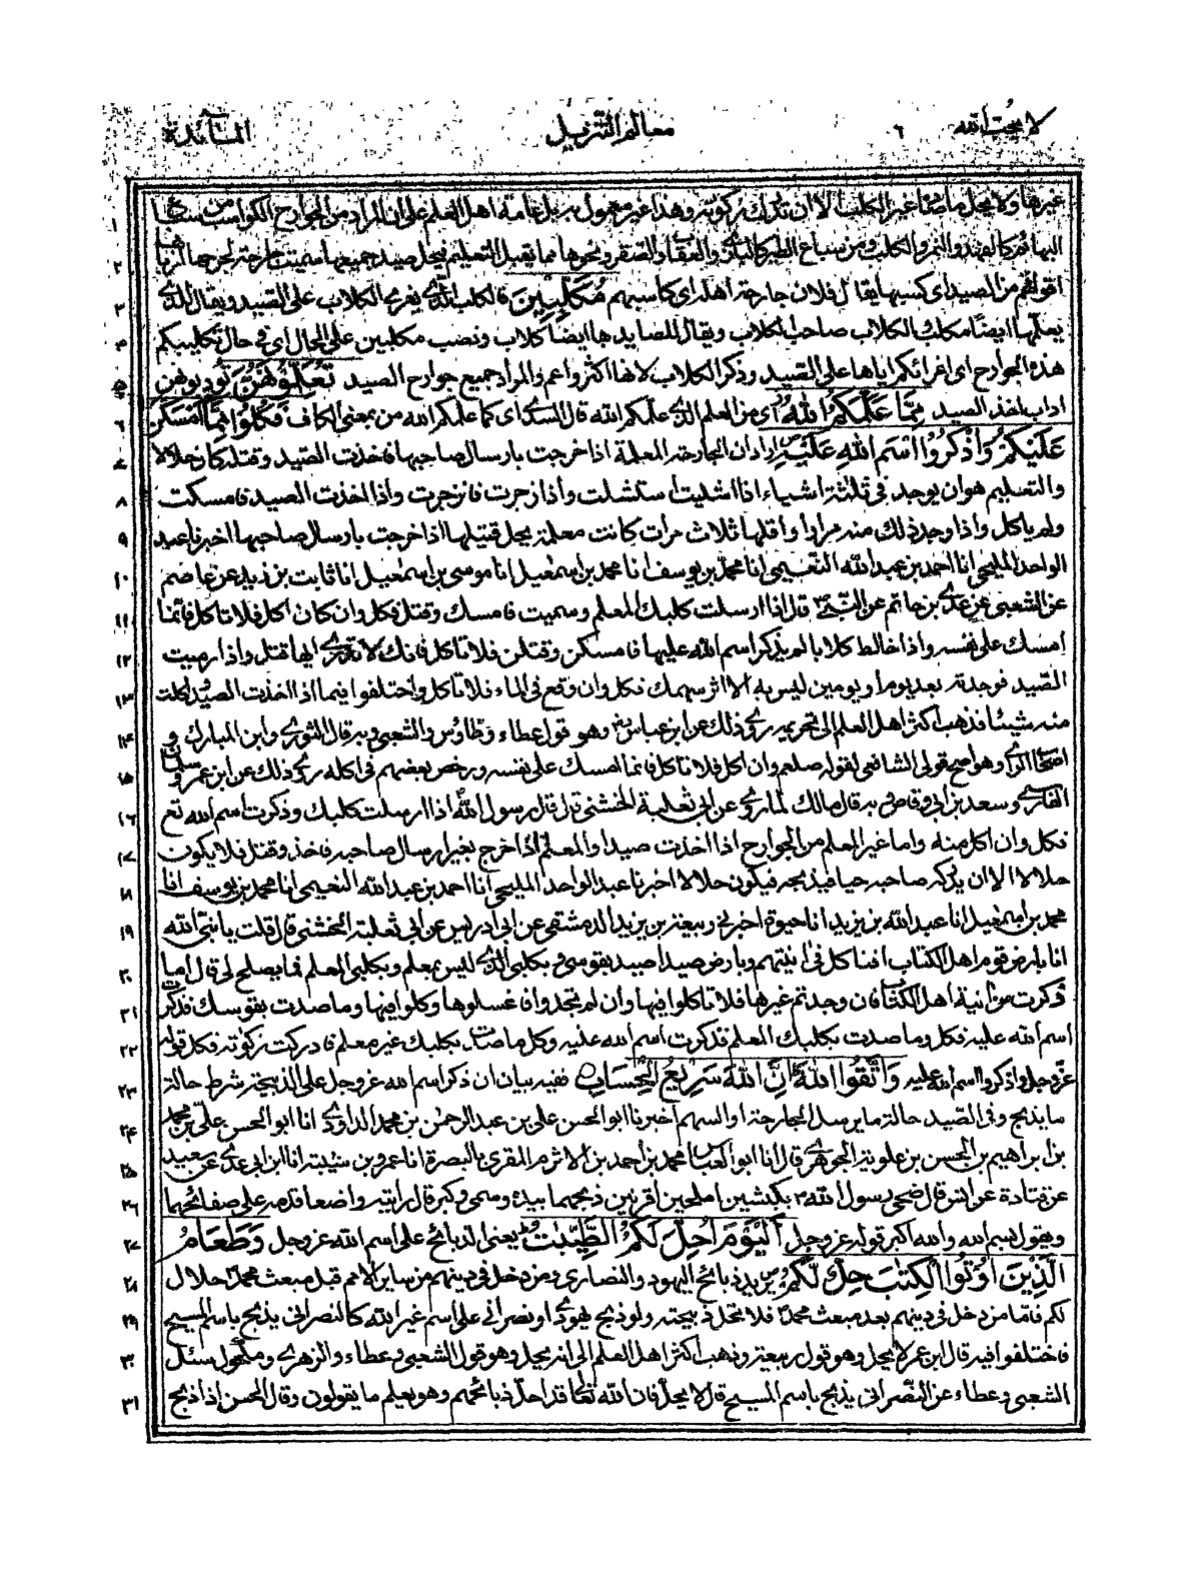 لا يحب الله ٦ معالم التنزيل المائدة
غيرها ولا يحل ما صاده غير الكلب الا ان تدرك ذكوته وهذا غير معمول به بل عامة اهل العلم على ان المراد من الجوارح الكواسب من سباع ١
البهائم كالفهد والنمر والكلب ومن سباع الطير كالبازي والعقاب والصقر ونحوها مما يقبل التعليم فيحل صيد جميعها سميت جارحة لجرحها اربابها ٢
اقواتهم من الصيد اى كسبها يقال فلان جارحة اهله اى كاسبهم مُكَلِّبِيْنَ فالكلب الذى يغرى الكلاب على الصيد ويقال للذى ٣
يعلمها ايضا مكلب الكلاب صاحب الكلاب ويقال للصايد بها ايضا كلاب ونصب مكلبين على الحال اى فى حال تكليبكم ۴
هذه الجوارح اى اغرائكم اياها على الصيد وذكر الكلاب لانها اكثر واعم والمراد جميع جوارح الصيد تُعَلِّمُوْنَهُنَّ تؤدبوهن ۵
اداب اخذ الصيد مِمَّا عَلَّمَكُمُ اللهُ اى من العلم الذى علمكم الله قال السدى اى كما علمكم الله من بمعنى الكاف فَكُلُوْا مِمَّا اَمْسَكْنَ ٦
عَلَيْكُمْ وَاذْكُرُوا اسْمَ اللهِ عَلَيْهِ اراد ان الجارحة المعلمة اذا خرجت بارسال صاحبها فاخذت الصيد وقتلته كان حلالا ٧
والتعليم هو ان يوجد فى ثلثة اشياء اذا اشليت استشلت واذا زجرت فانزجرت واذا اخذت الصيد فامسكت ٨
ولم ياكل واذا وجد ذلك منه مرارا واقلها ثلاث مرات كانت معلمة يحل قتيلها اذا خرجت بارسال صاحبها اخبرنا عبد ٩
الواحد المليحى انا احمد بن عبد الله النعيمى انا محمد بن يوسف انا محمد بن اسمعيل انا موسى بن اسمعيل انا ثابت بن زيد عن عاصم ١٠
عن الشعبى عن عدى بن حاتم عن النبى قال اذا ارسلت كلبك المعلم وسميت فامسك وقتل فكل وان كان اكل فلا تاكل فانما ١١
امسك على نفسه واذا خالط كلابا لم يذكر اسم الله عليها فامسكن وقتلن فلا تاكل فانك لا تدرى ايها قتل واذا رميت ١٢
الصيد فوجدته بعد يوم او يومين ليس به الا اثر سهمك فكل وان وقع فى الماء فلا تاكل واختلفوا فيما اذا اخذت الصيد واكلت ١٣
منه شيئا فذهب اكثر اهل العلم الى تحريمه روى ذلك عن ابن عباس وهو قول عطاء وطاؤس والشعبى وبه قال الثورى وابن المبارك و ١۴
اصحاب الراى وهو اصح قولى الشافعى لقوله صلعم وان اكل فلا تاكل فانما امسك على نفسه ورخص بعضهم فى اكله روى ذلك عن ابن عمر وسلمان ١۵
الفارسى وسعد بن ابى وقاص وبه قال مالك لما روى عن ابى ثعلبة الخشنى قال قال رسول الله اذا ارسلت كلبك وذكرت اسم الله تع ١٦
فكل وان اكل منه واما غير المعلم من الجوارح اذا اخذت صيدا والمعلم اذا خرج بغير ارسال صاحبه فاخذ وقتل فلا يكون ١٧
حلالا الا ان يدركه صاحبه حيا فيذبحه فيكون حلالا اخبرنا عبد الواحد المليحى انا احمد بن عبد الله النعيمى انا محمد بن يوسف انا ١٨
محمد بن اسمعيل انا عبد الله بن يزيد انا حيوة اخبرنى ربيعة بن يزيد الدمشقى عن ابى ادريس عن ابى ثعلبة الخشنى قال قلت يا نبى الله ١٩
انا بارض قوم اهل الكتاب افناكل فى انيتهم وبارض صيد اصيد بقوسى وبكلبى الذى ليس بمعلم وبكلبى المعلم فما يصلح لى قال اما ما ٢٠
ذكرت من انية اهل الكتاب فان وجدتم غيرها فلا تاكلوا فيها وان لم تجدوا فاغسلوها وكلوا فيها وما صدت بقوسك فذكرت ٢١
اسم الله عليه فكل وما صدت بكلبك المعلم فذكرت اسم الله عليه وكل ما صدت بكلبك غير معلم فادركت ذكوته فكل قوله ٢٢
عز وجل واذكروا اسم الله عليه وَاتَّقُوا اللهَ اِنَّ اللهَ سَرِيْعُ الْحِسَابِ ففيه بيان ان ذكر اسم الله عز وجل على الذبيحة شرط حالة ٢٣
ما يذبح وفى الصيد حالة ما يرسل الجارحة او السهم اخبرنا ابو الحسن على بن عبد الرحمن بن محمد الداؤدى انا ابو الحسن على بن محمد ٢۴
بن ابراهيم بن الحسن بن علوية الجوهرى قال انا ابو العباس محمد بن احمد بن الاثرم المقرى بالبصرة انا عمرو بن شيبة انا ابن ابى عدى عن سعيد ٢۵
عن قتادة عن انس قال ضحى رسول الله بكبشين املحين اقرنين ذبحهما بيده وسمى وكبر قال رايته واضعا قدمه على صفائحهما ٢٦
ويقول بسم الله والله اكبر قوله عز وجل اَلْيَوْمَ اُحِلَّ لَكُمُ الطَّيِّبٰتُ يعنى الذبائح على اسم الله عز وجل وَطَعَامُ ٢٧
الَّذِيْنَ اُوْتُوا الْكِتٰبَ حِلٌّ لَّكُمْ يريد ذبائح اليهود والنصارى ومن دخل فى دينهم من ساير الامم قبل مبعث محمد حلال ٢٨
لكم فاما من دخل فى دينهم بعد مبعث محمد فلا تحل ذبيحته ولو ذبح يهودى او نصرانى على اسم غير الله كالنصرانى يذبح باسم المسيح ٢٩
فاختلفوا فيه قال ابن عمر لا يحل وهو قول ربيعة وذهب اكثر اهل العلم الى انه يحل وهو قول الشعبى وعطاء والزهرى ومكحول سئل ٣٠
الشعبى وعطاء عن النصرانى يذبح باسم المسيح قالا يحل فان الله تعالى قد احل ذبائحهم وهو يعلم ما يقولون وقال الحسن اذا ذبح ٣١